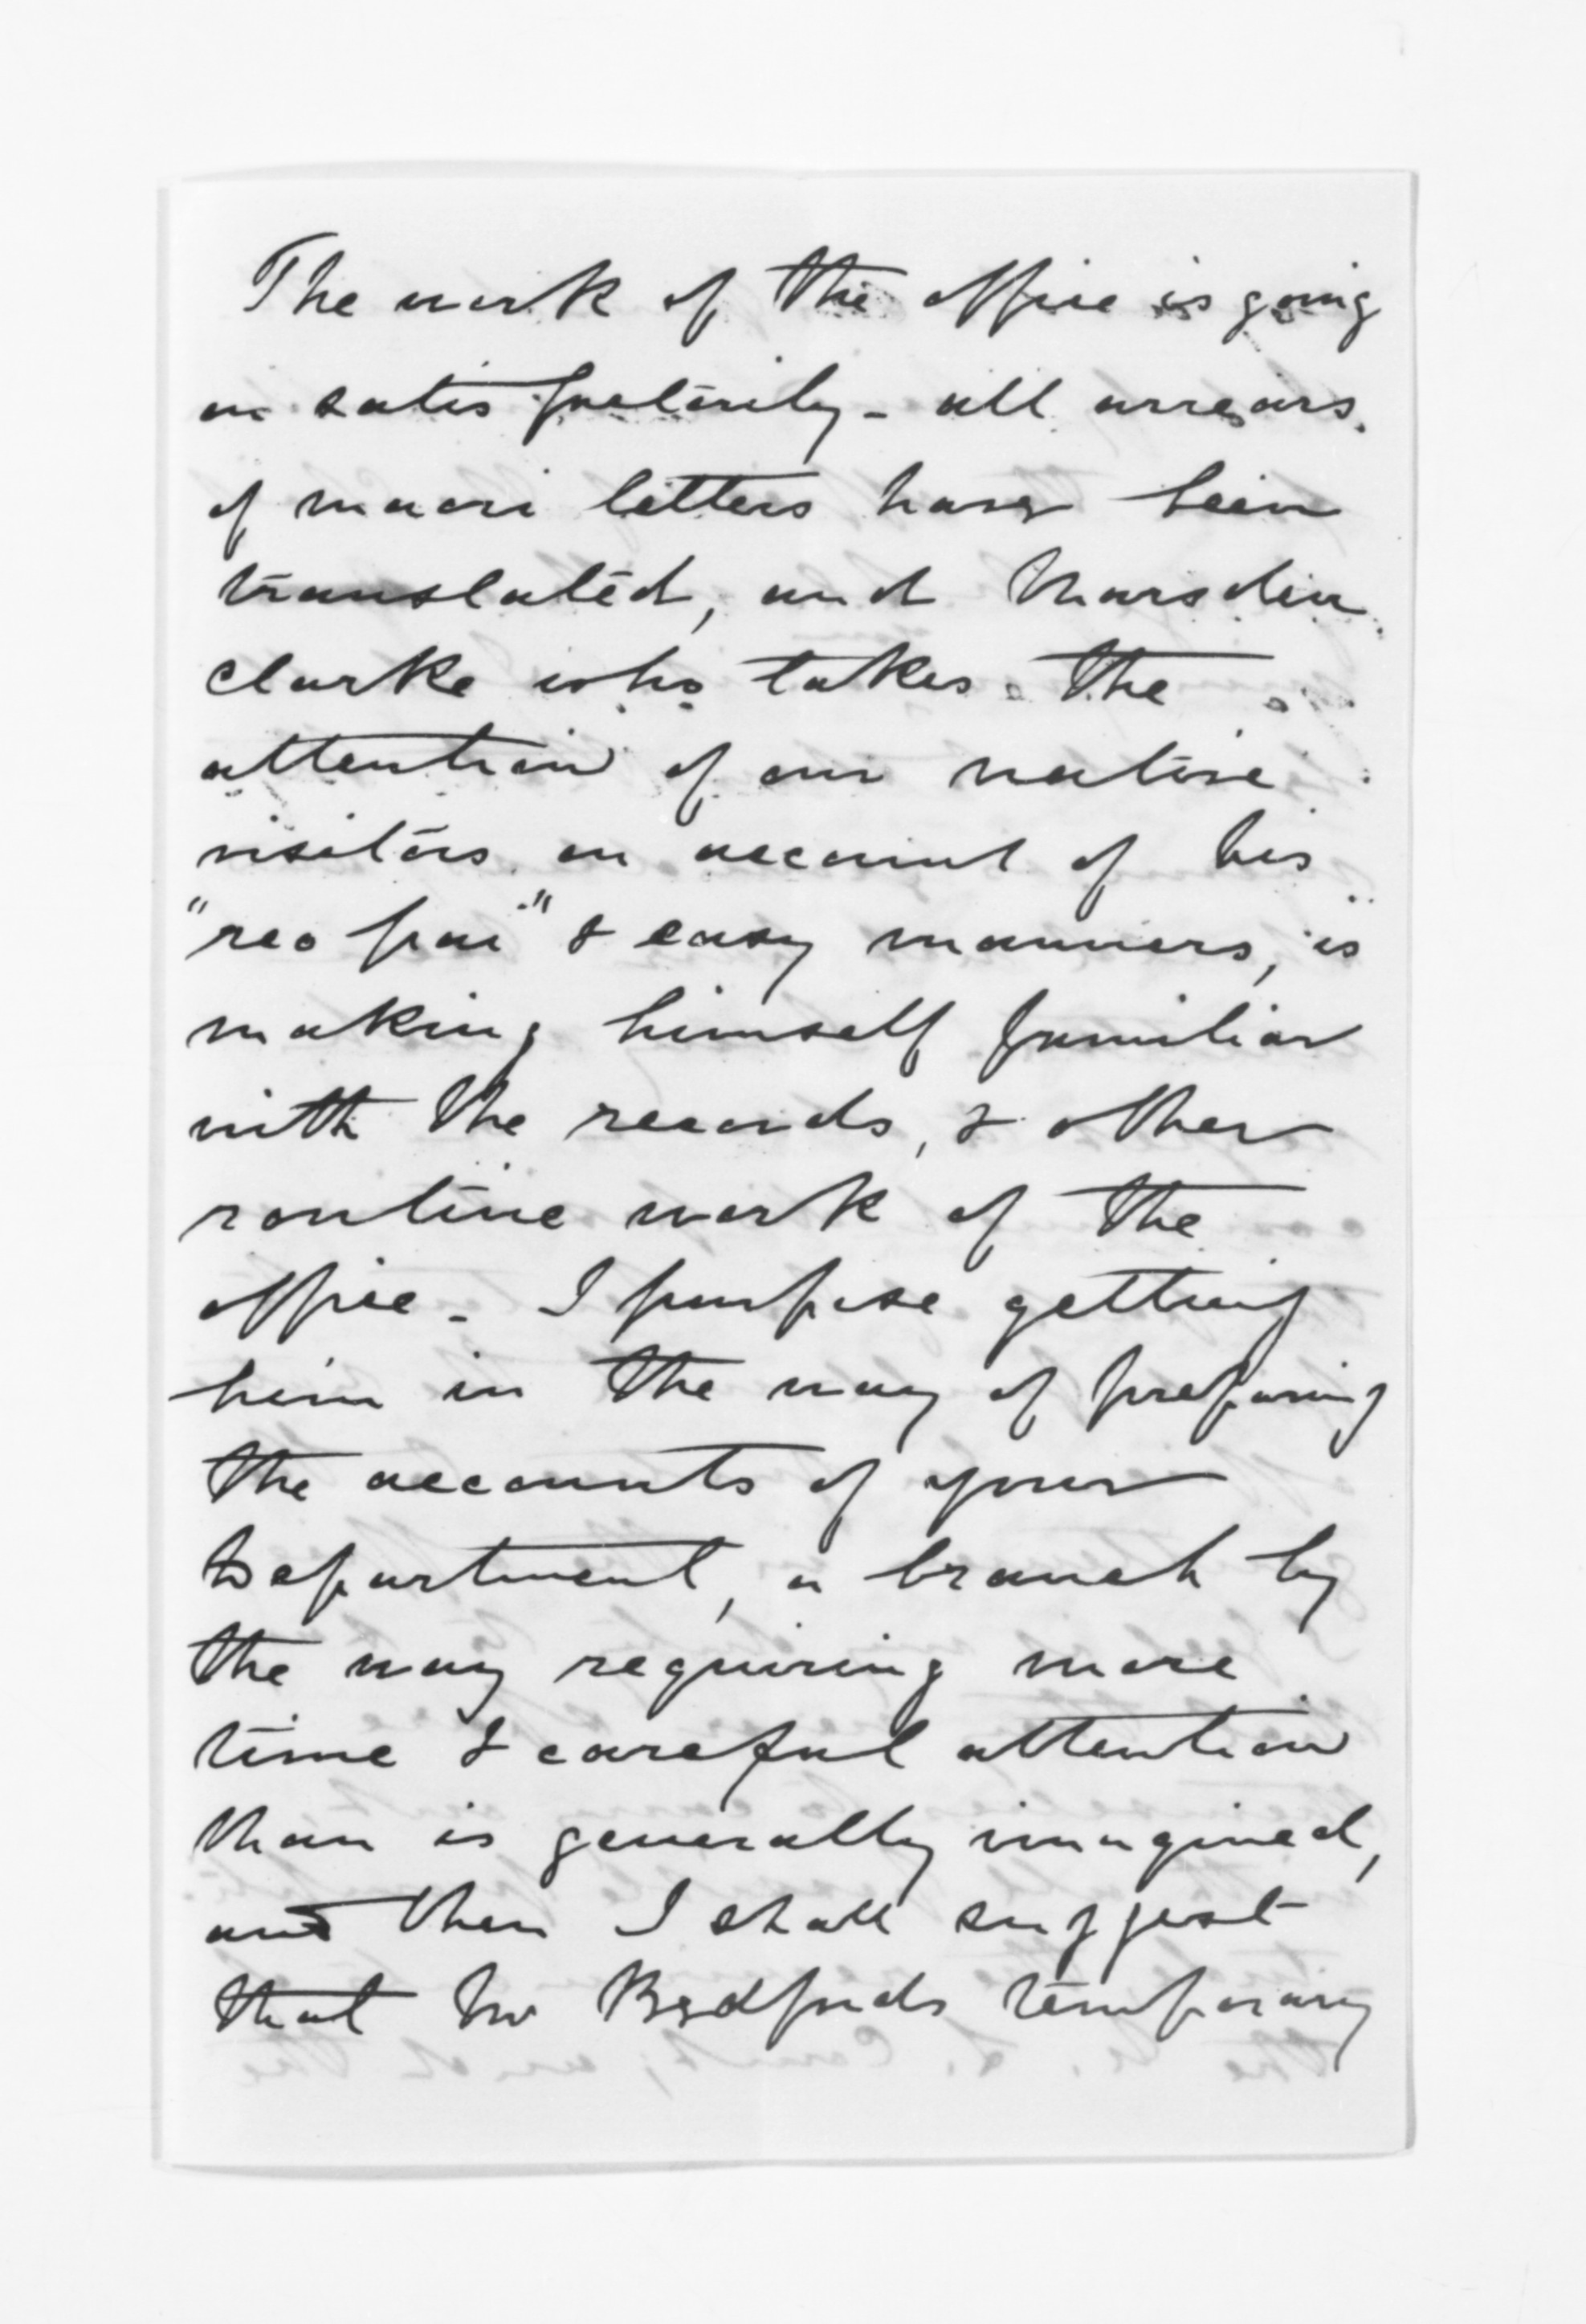 The work of the office is going
on satisfactorily - all arrears
of maori letters have been
translated, and Marsden
Clarke who takes the
attention of our native
visitors on account of his
"reo pai" & easy manners, is
making himself familiar
with the records, & other
routine work of the
office - I purpose getting
him in the way of preparing
the accounts of your
Department, a branch by
the way requiring more
time & careful attention
than is generally imagined,
and then I shall suggest
that Mr Bedfords temporary